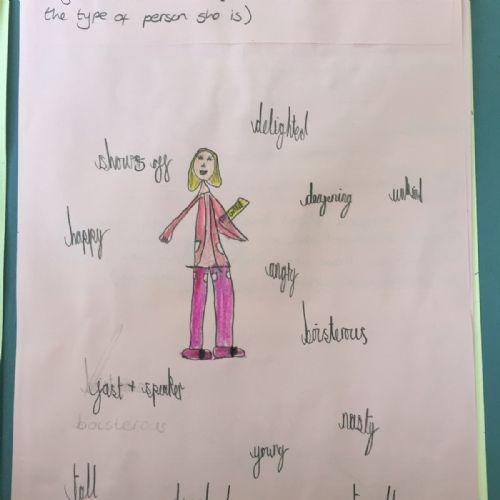 the type of person she is)
delighted
shows off
unkind
happy
angry
boisterous
fast + speaker
boisterous
nasty
young
tall